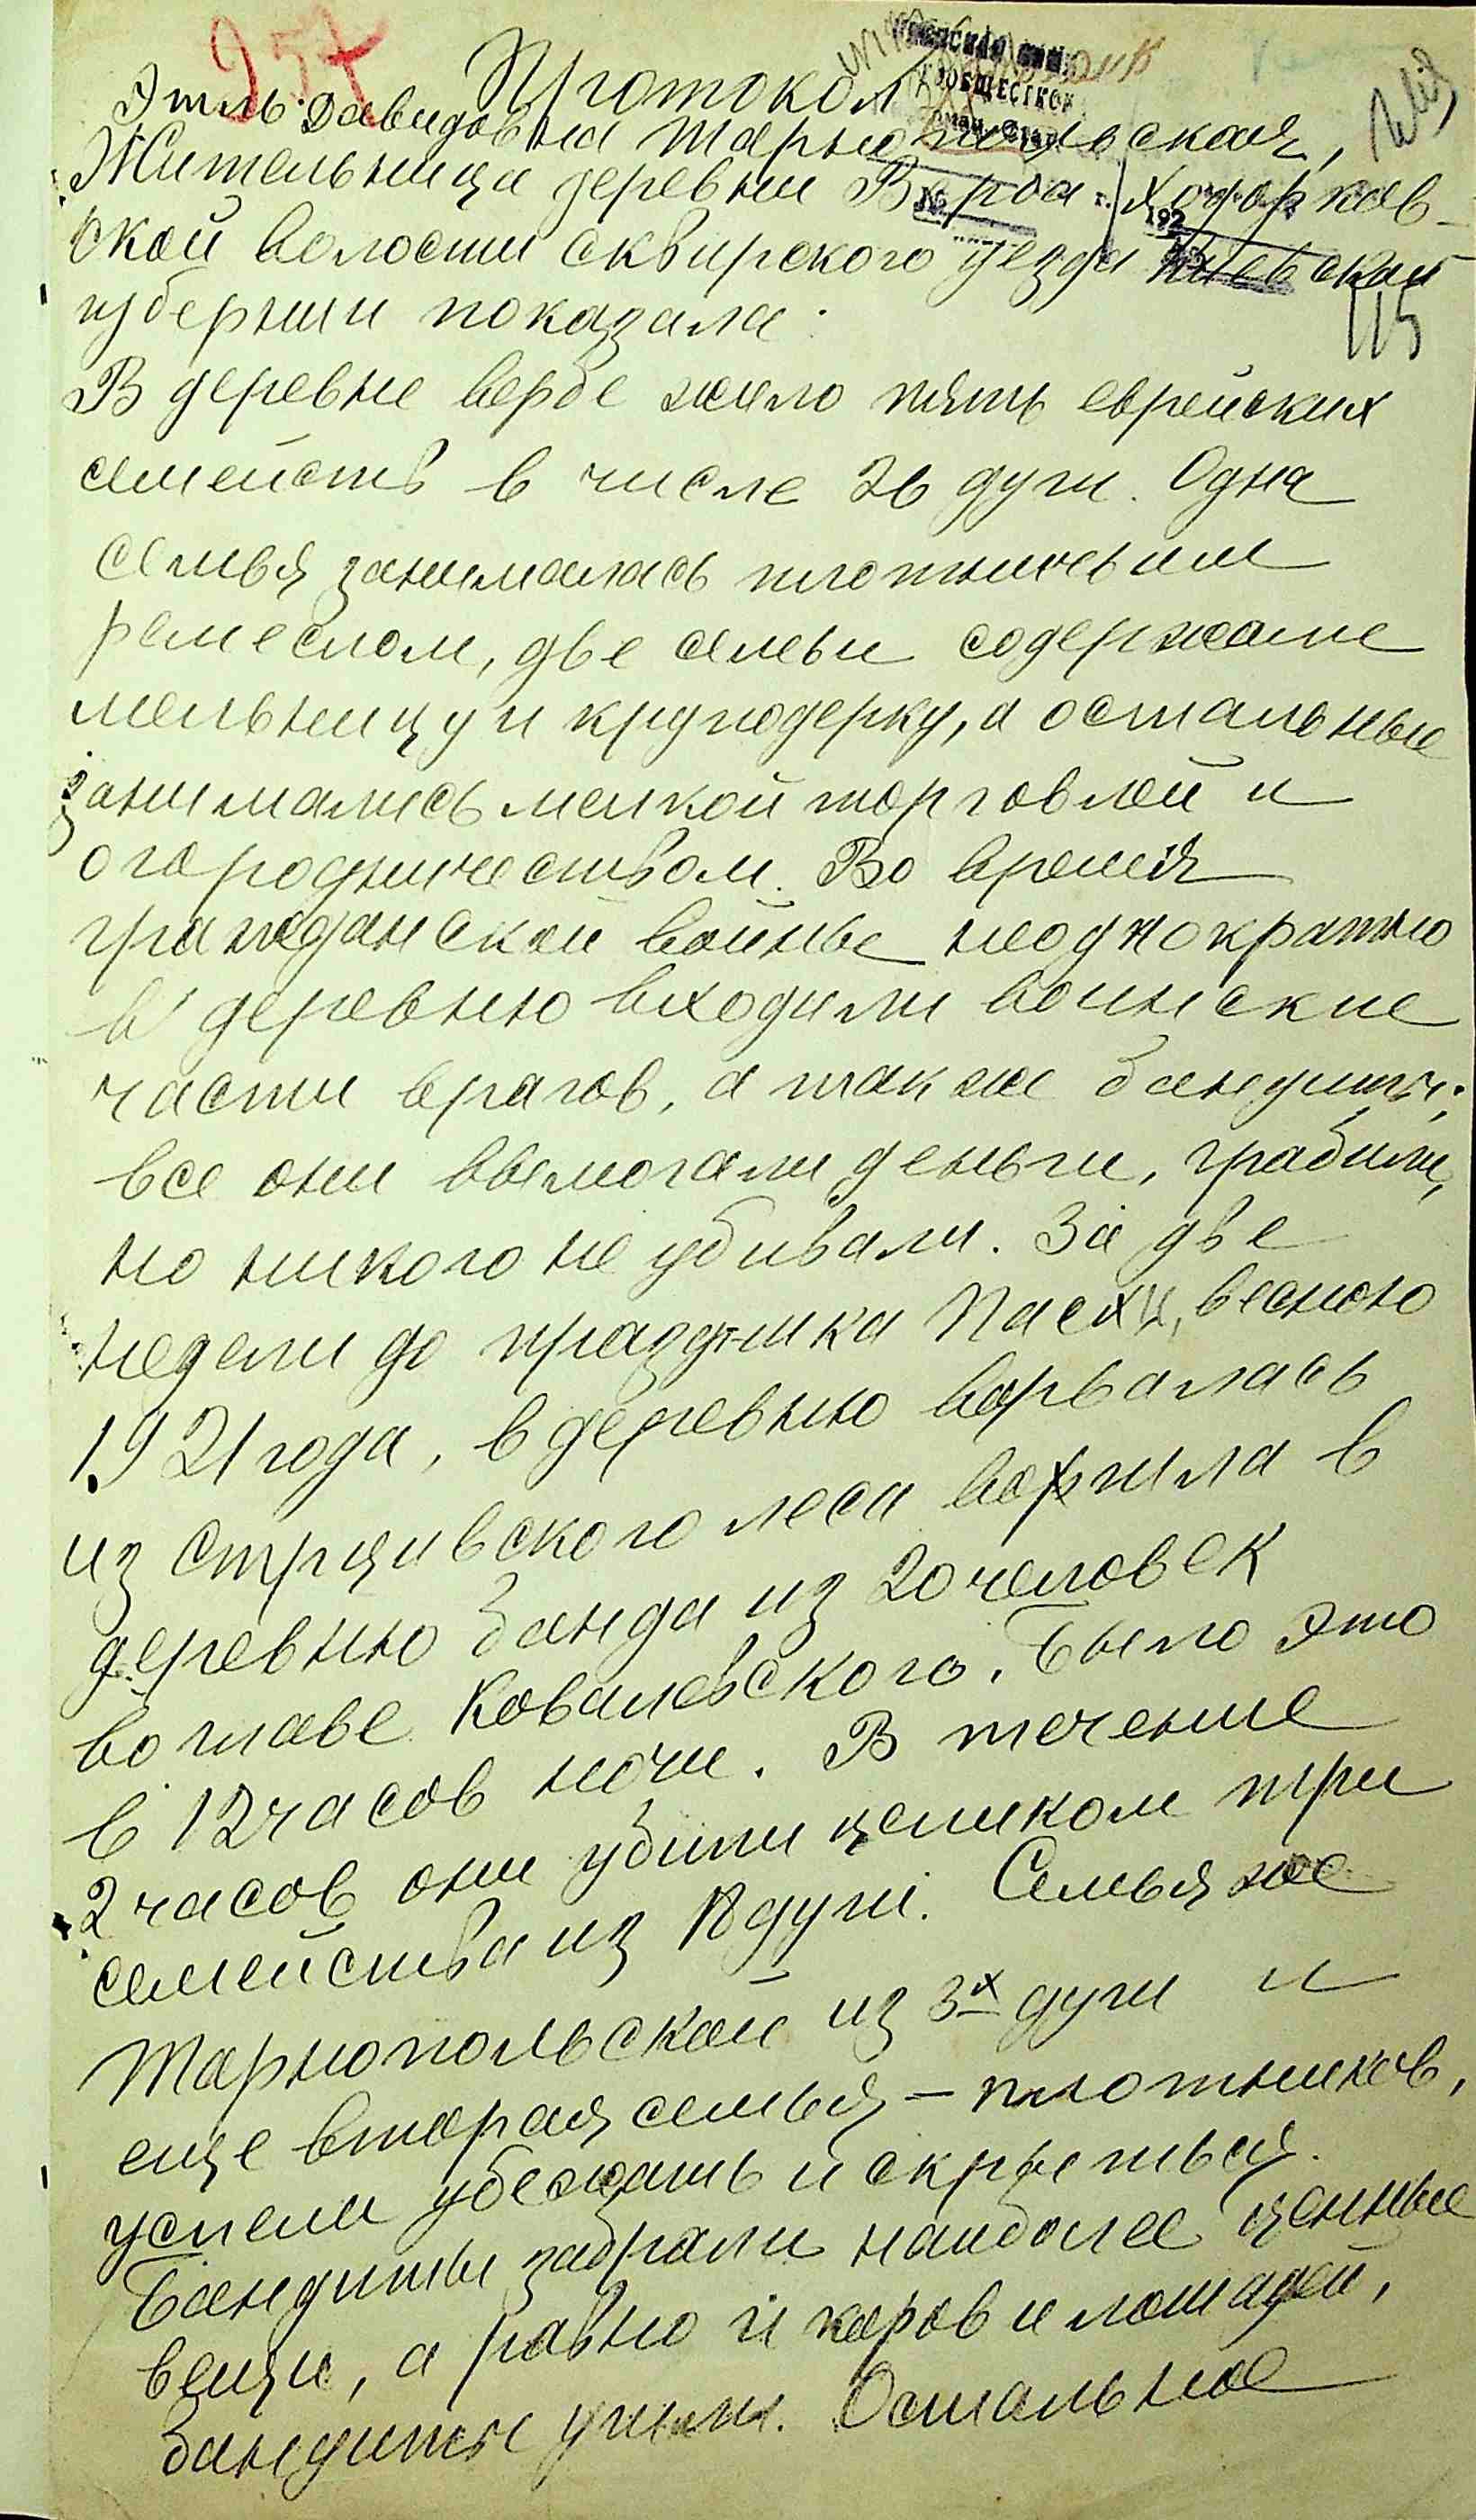 957
Протокол
Этль Давидовна Тарнопольская,
Жительница деревни Верба Ходорков-
ской волости сквирского уезда киевской
губернии показала:
115
В деревне Вербе жило пять еврейских
семейств в числе 26 душ. Одна
семья занималась плотничьим
ремеслом, две семьи содержали
мельницу и круподерку, а остальные
занимались мелкой торговлей и
огородничеством. Во время
гражданской войны неоднократно
в деревню входили воинские
части врагов, а также бандиты;
все они вымогали деньги, грабили,
но никого не убивали. За две
недели до праздника Пасхи, весною
1921 года, в деревню ворвалась
из леса в
деревню банда из 20 человек
во главе Ковалевского. Было это
в 12 часов ночи. В течение
2 часов они убили целиком три
семейства из 18 душ. Семья же
Тарнопольской из 3х душ и
еще вторая семья – плотников,
успели убежать и скрыться.
Бандиты забрали наиболее ценные
вещи, а равно и коров и лошадей,
бандиты ушли. Остальное